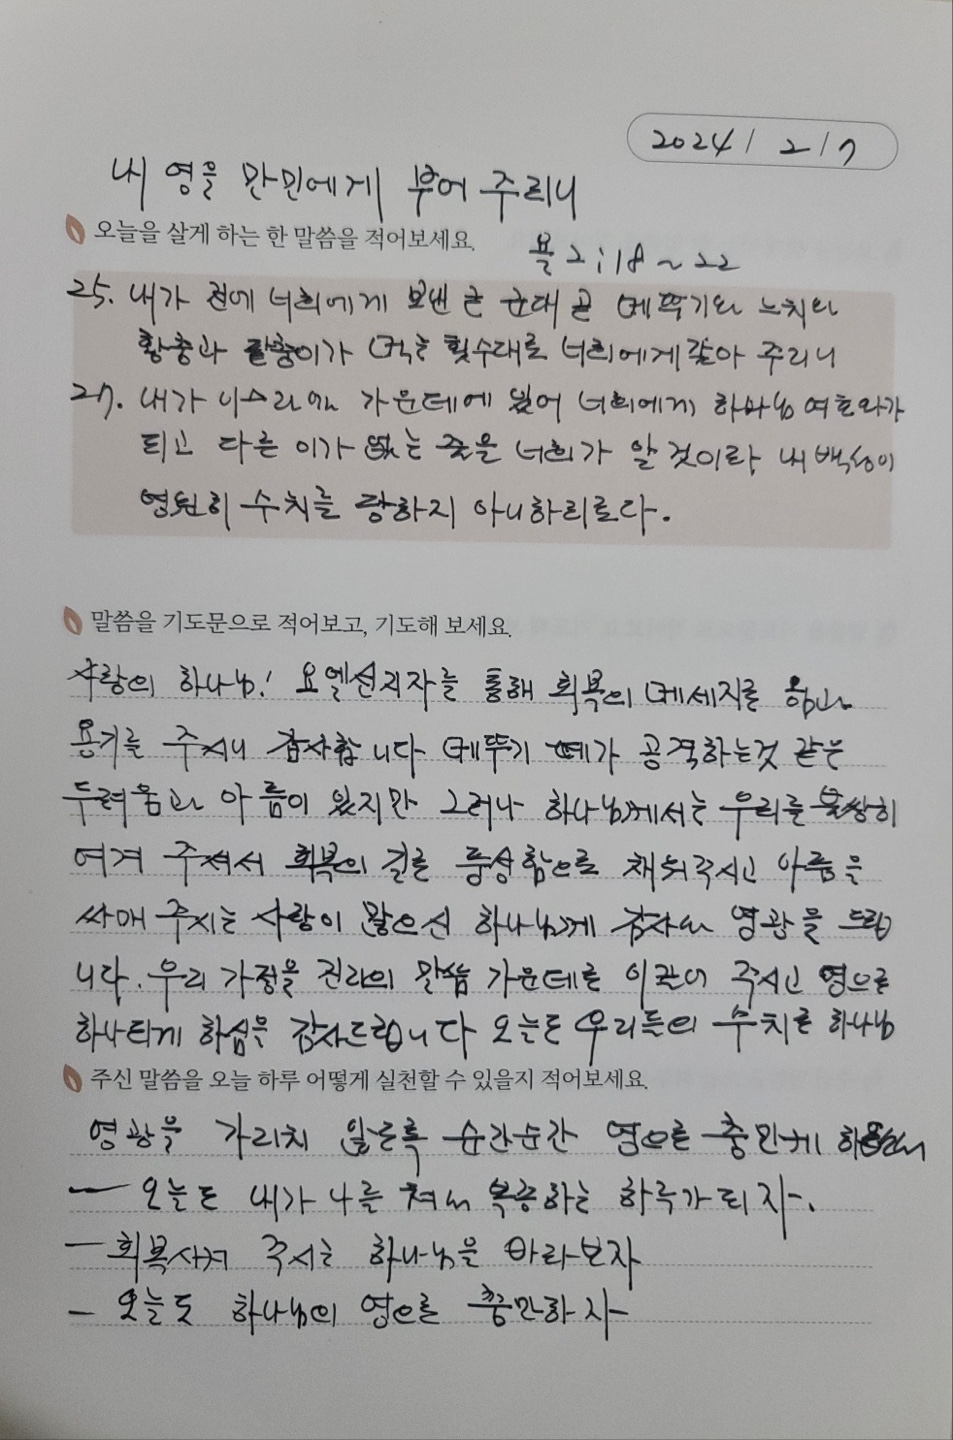 2024 / 2 / 7
내 영을 만민에게 부어 주리니
오늘을 살게 하는 한 말씀을 적어보세요.
욜 2:18~22
25. 내가 전에 너희에게 보낸 큰 군대 곧 메뚜기와 느치와
황충과 팥중이가 먹는 횟수대로 너희에게 갚아 주리니
27. 내가 이스라엘 가운데에 있어 너희에게 하나님 여호와가
되고 다른 이가 없는 줄을 너희가 알 것이라 내 백성이
영원히 수치를 당하지 아니하리로다.
말씀을 기도문으로 적어보고, 기도해 보세요.
사랑의 하나님! 요엘선지자를 통해 회복의 메세지를 힘과
용기를 주시니 감사합니다 메뚜기 떼가 공격하는것 같은
두려움과 아픔이 있지만 그러나 하나님께서는 우리를 불쌍히
여겨 주셔서 회복의 길로 풍성함으로 채워주시고 아픔을
싸매 주시는 사랑이 많으신 하나님께 감사와 영광을 드립
니다. 우리 가정을 진리의 말씀 가운데로 이끌어 주시고 영으로
하나되게 하심을 감사드립니다 오늘도 우리들의 수치를 하나님
주신 말씀을 오늘 하루 어떻게 실천할 수 있을지 적어보세요.
영광을 가리치 않도록 순간순간 영으로 충만케
— 오늘도 내가 나를 쳐서 복종하는 하루가 되자.
— 회복시켜 주시는 하나님을 바라보자
— 오늘도 하나님의 영으로 충만하자